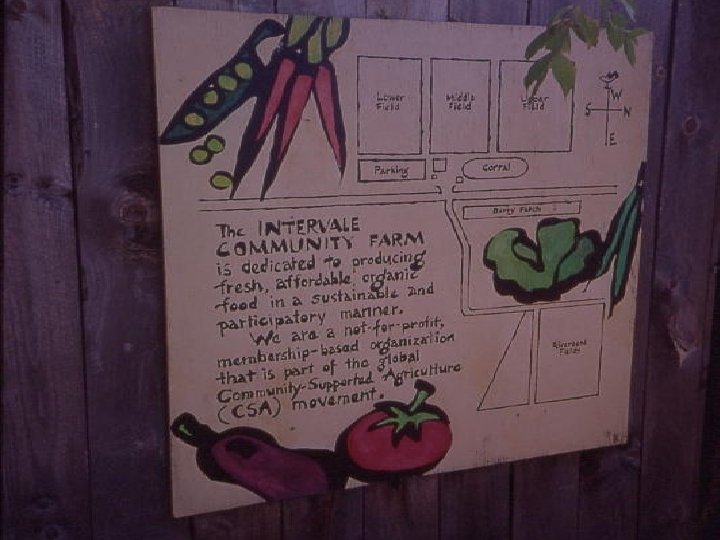 Lower
Field
Middle
Field
Upper
Field
W
S N
E
Parking
Corral
Berry Patch
The INTERVALE
COMMUNITY FARM
is dedicated to producing
fresh, affordable, organic
food in a sustainable and
participatory manner.
We are a not-for-profit,
membership-based organization
that is part of the global
Community-Supported Agriculture
(CSA) movement.
Riverbend
Fields